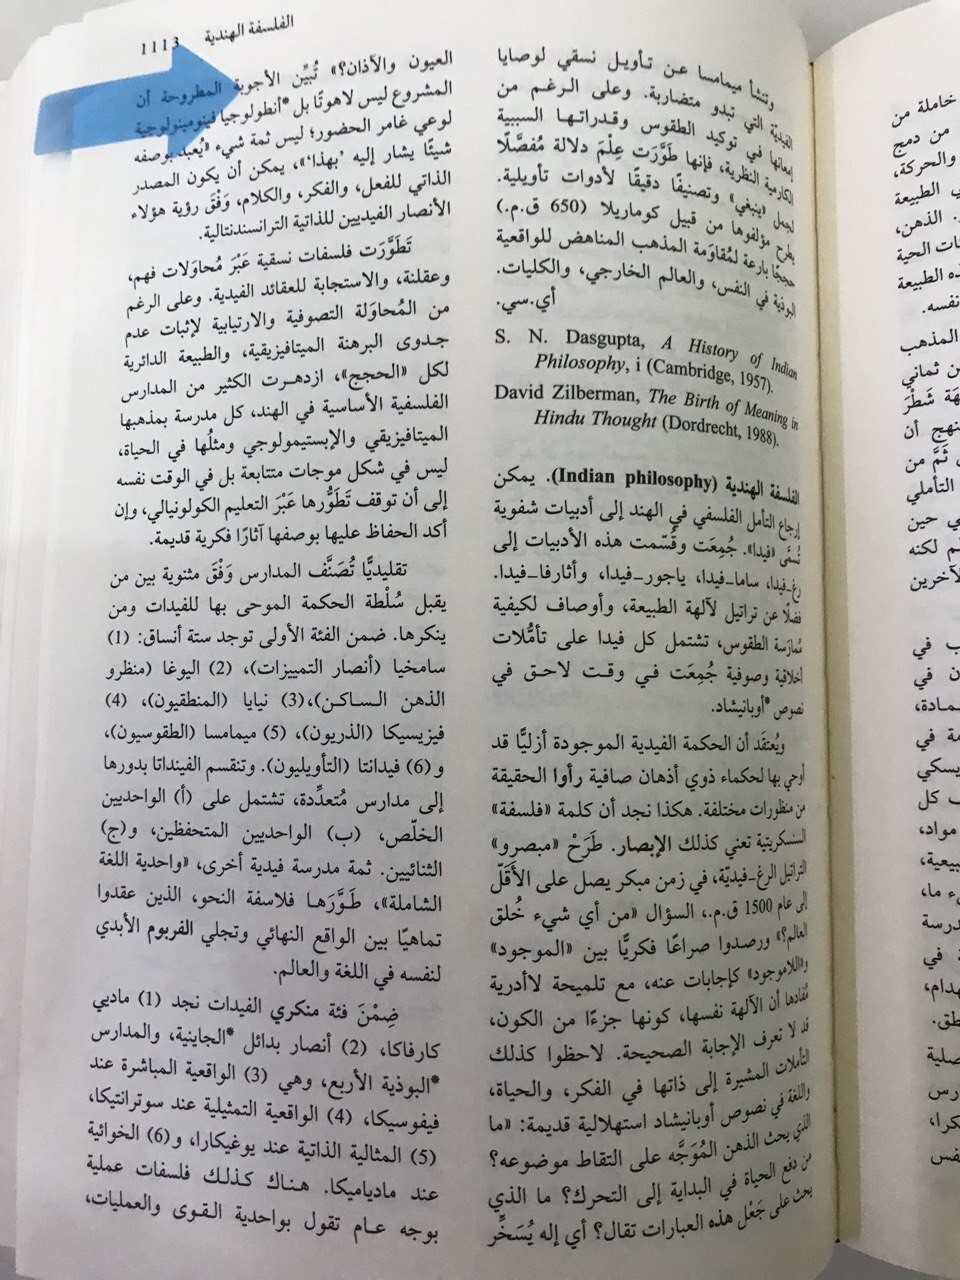 الفلسفة الهندية 1113
وتنشأ ميمامسا عن تأويل نسقي لوصايا
الفيديّة التي تبدو متضاربة. وعلى الرغم من
إمعانها في توكيد الطقوس وقدراتها السببية
الكارمية النظرية، فإنها طَوَّرَت عِلْمَ دلالة مُفصَّلًا
لجمل «ينبغي» وتصنيفًا دقيقًا لأدوات تأويلية.
يطرح مؤلفوها من قبيل كوماريلا (650 ق.م.)
حججًا بارعة لمُقاوَمة المذهب المناهض للواقعية
البوذية في النفس، والعالم الخارجي، والكليات.
أي.سي.
S. N. Dasgupta, A History of Indian
Philosophy, i (Cambridge, 1957).
David Zilberman, The Birth of Meaning in
Hindu Thought (Dordrecht, 1988).
الفلسفة الهندية (Indian philosophy). يمكن
إرجاع التأمل الفلسفي في الهند إلى أدبيات شفوية
تُسمَّى «فيدا». جُمِعَت وقُسّمت هذه الأدبيات إلى
رغ-فيدا، ساما-فيدا، ياجور-فيدا، وأثارفا-فيدا.
فضلًا عن تراتيل لآلهة الطبيعة، وأوصاف لكيفية
مُمارَسة الطقوس، تشتمل كل فيدا على تأمُّلات
أخلاقية وصوفية جُمِعَت في وقت لاحق في
نصوص *أوبانيشاد.
ويُعتقَد أن الحكمة الفيدية الموجودة أزليًّا قد
أوحي بها لحكماء ذوي أذهان صافية رأوا الحقيقة
من منظورات مختلفة. هكذا نجد أن كلمة «فلسفة»
السنسكريتية تعني كذلك الإبصار. طَرَحْ «مبصرو»
التراتيل الرغ-فيديّة، في زمن مبكر يصل على الأَقَلّ
إلى عام 1500 ق.م.، السؤال «من أي شيء خُلق
العالم؟» ورصدوا صراعًا فكريًّا بين «الموجود»
و«اللاموجود» كإجابات عنه، مع تلميحة لاأدرية
مُفادها أن الآلهة نفسها، كونها جزءًا من الكون،
قد لا تعرف الإجابة الصحيحة. لاحظوا كذلك
التأملات المشيرة إلى ذاتها في الفكر، والحياة،
واللغة في نصوص أوبانيشاد استهلالية قديمة: «ما
الذي يبحث الذهن المُوَجَّه على التقاط موضوعه؟
من دفع الحياة في البداية إلى التحرك؟ ما الذي
يحث على جَعْل هذه العبارات تقال؟ أي إله يُسَخِّر
العيون والآذان؟» تُبيِّن الأجوبة المطروحة أن
المشروع ليس لاهوتًا بل *أنطولوجيا فينومينولوجية
لوعي غامر الحضور؛ ليس ثمة شيء «يُعبد بوصفه
شيئًا يشار إليه 'بهذا'»، يمكن أن يكون المصدر
الذاتي للفعل، والفكر، والكلام، وَفْقَ رؤية هؤلاء
الأنصار الفيديين للذاتية الترانسندنتالية.
تَطَوَّرَت فلسفات نسقية عَبْرَ مُحاوَلات فهم،
وعقلنة، والاستجابة للعقائد الفيدية. وعلى الرغم
من المُحاوَلة التصوفية والارتيابية لإثبات عدم
جدوى البرهنة الميتافيزيقية، والطبيعة الدائرية
لكل «الحجج»، ازدهرت الكثير من المدارس
الفلسفية الأساسية في الهند، كل مدرسة بمذهبها
الميتافيزيقي والإبستيمولوجي ومثلُها في الحياة،
ليس في شكل موجات متتابعة بل في الوقت نفسه
إلى أن توقف تَطَوُّرها عَبْرَ التعليم الكولونيالي، وإن
أكد الحفاظ عليها بوصفها آثارًا فكرية قديمة.
تقليديًّا تُصَنَّف المدارس وَفْقَ مثنوية بين من
يقبل سُلْطة الحكمة الموحى بها للفيدات ومن
ينكرها. ضمن الفئة الأولى توجد ستة أنساق: (1)
سامخيا (أنصار التمييزات)، (2) اليوغا (منظرو
الذهن الساكن)،(3) نيايا (المنطقيون)، (4)
فيزيسيكا (الذريون)، (5) ميمامسا (الطقوسيون)،
و(6) فيدانتا (التأويليون). وتنقسم الفينداتا بدورها
إلى مدارس مُتعدِّدة، تشتمل على (أ) الواحديين
الخلّص، (ب) الواحديين المتحفظين، و(ج)
الثنائيين. ثمة مدرسة فيدية أخرى، «واحدية اللغة
الشاملة»، طَوَّرَها فلاسفة النحو، الذين عقدوا
تماهيًا بين الواقع النهائي وتجلي الفربوم الأبدي
لنفسه في اللغة والعالم.
ضِمْنَ فئة منكري الفيدات نجد (1) ماديي
كارفاكا، (2) أنصار بدائل *الجاينية، والمدارس
*البوذية الأربع، وهي (3) الواقعية المباشرة عند
فيفوسيكا، (4) الواقعية التمثيلية عند سوترانتيكا،
(5) المثالية الذاتية عند يوغيكارا، و(6) الخوائية
عند مادياميكا. هناك كذلك فلسفات عملية
بوجه عام تقول بواحدية القوى والعمليات،
خاملة من
من دمج
والحركة،
الطبيعة
الذهن،
الطبيعة
نفسه.
المذهب
ن ثماني
شَطْرَ
نهج أن
ثَمَّ من
التأملي
في حين
لم لكنه
الآخرين
ب في
ن في
ة في
كل
مواد،
ما،
درسة
في
طق.
صلية
كرا،